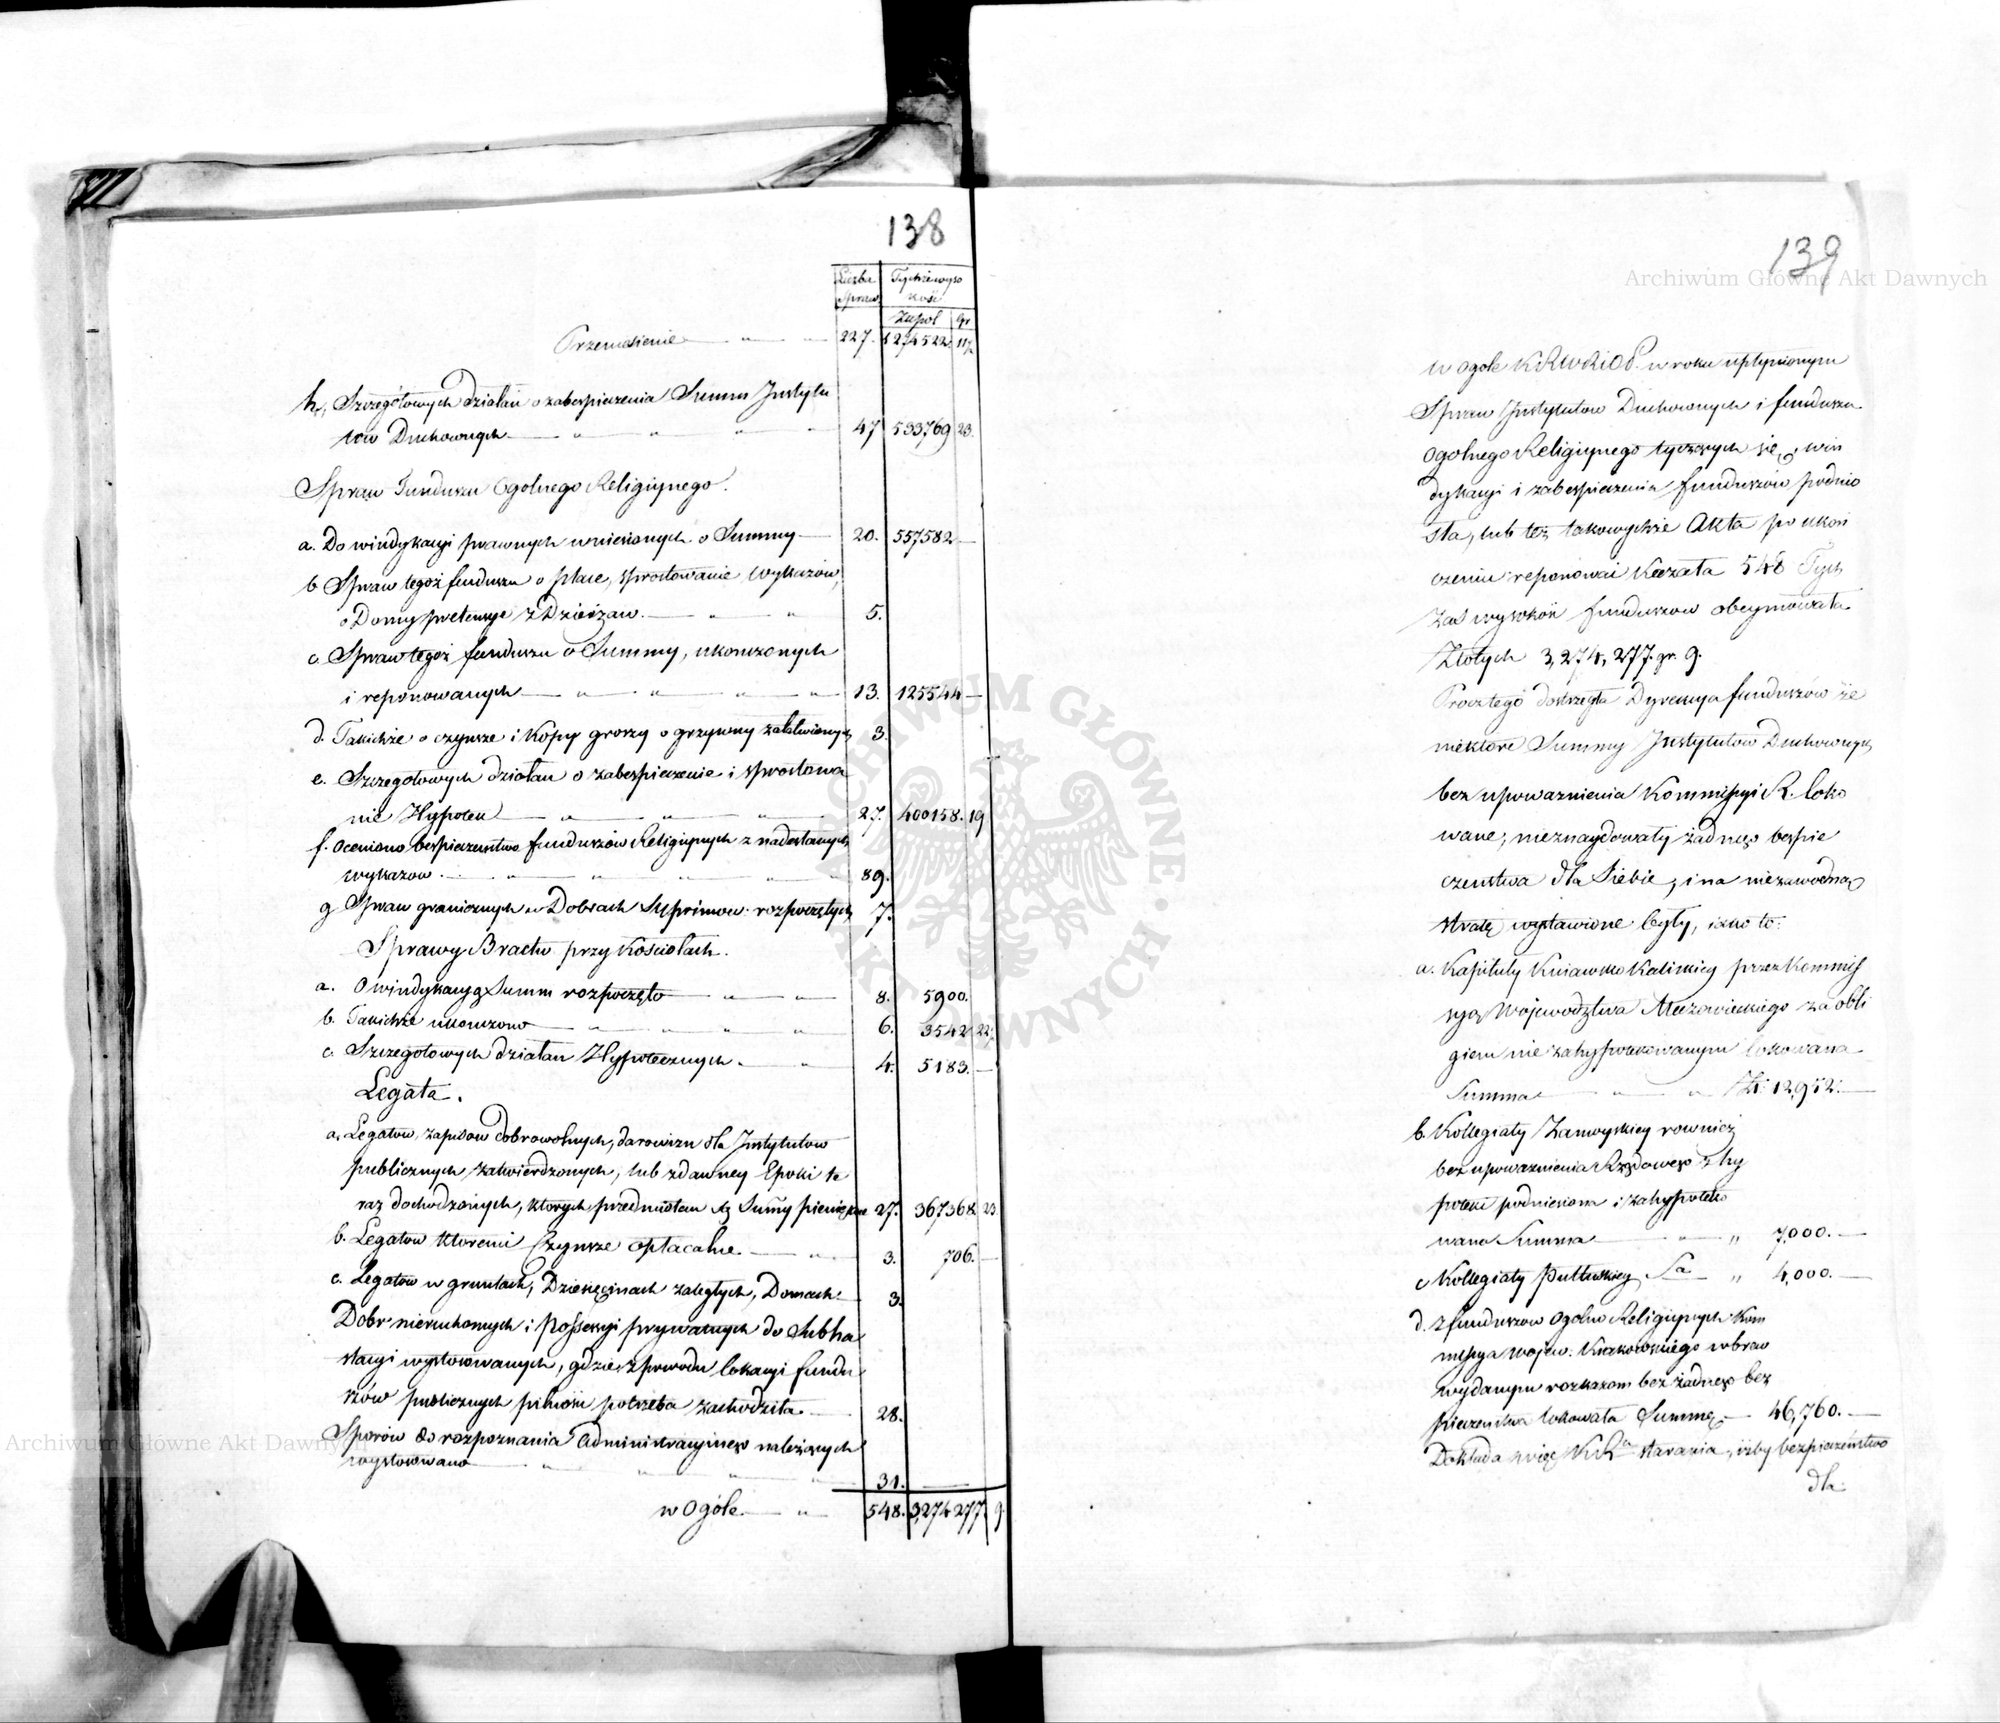 138
Liczba Spraw
Tychże wysokość
Zł. pol gr
Przeniesienie 227. 1274522. 11½
h, Szczegółowych działań o zabespieczenia Summ Instytu
tów Duchownych 47 533769 23.
Spraw Funduszu Ogolnego Religiynego.
a. Do windykacyi prawnych wniesionych o Summy 20. 557582 —
b Spraw tegoż funduszu o place, sprostowanie wykazów,
o Domy pretensye z Dzierżaw. 5.
c. Spraw tegoż funduszu o Summy, ukonczonych
i reponowanych 13. 125544 —
d. Takichże o czynsze i kopy groszy o grzywny załatwionych 3.
e. Szczegołowych działan o zabespieczenie i sprostowa
nie Hypotek 27. 400158. 19
f. Oceniono bespieczenstwo funduszów Religiynych z nadesłanych
wykazow. 89.
g Spraw granicznych w Dobrach Suprimow. rozpoczętych 7.
Sprawy Bractw przy Kosciołach.
a. O windykacyą Summ rozpoczęto 8. 5900.
b. Takichże ukonczono 6. 3542 22½
c. Szczegołowych działan Hypotecznych. 4. 5183. —
Legata.
a. Legatow, zapisow dobrowolnych, darowizn dla Instytutow
publicznych zatwierdzonych, lub z dawney Epoki te
raz dochodzonych, ktorych przedmiotem są Summy pieniężne 27. 367368 23
b. Legatow ktoremi Czynsze opłacalne. 3. 706. —
c. Legatow w gruntach, Dziesięcinach zaległych, Domach 3.
Dobr nieruchomych i possessyi prywatnych do Subha
stacyi wystosowanych, gdzie z powodu lokacyi fundu
szów publicznych pilności potrzeba zachodziła. 28.
Sporów do rozpoznania Administracyinego należących
wystosowano 31.
w Ogóle 548. 3,274 277. 9.
139
w ogole KRWRiOP. w roku upłynionym
Spraw Instytutow Duchownych i funduszu
Ogolnego Religiynego tyczących się, win
dykacyi i zabespieczenia funduszów podnio
sła, lub też takowychże Akta po ukoń
czeniu reponować kazała 548 Tych
zaś wysokość funduszow obeymowała
Złotych 3,274,277. gr. 9.
Procz tego dostrzegła Dyrekcya funduszów że
niektore Summy Instytutow Duchownych
bez upoważnienia Kommissyi R. loko
wane, nieznaydowały żadnego bespie
czenstwa dla siebie, i na niezawodną
stratę wystawione były, iako to:
a. Kapituły Kuiawsko Kaliskiey przez Kommis
syą Woiewództwa Mazowieckiego za obli
giem nie zahypotekowanym lokowana
Summa Zł: 12,952. —
b. Kollegiaty Zamoyskiey rownież
bez upoważnienia Rządowego z hy
poteki podniesiona i zahypoteko
wana Summa „ 7,000. —
c Kollegiaty Pułtuskiey Sa „ 4,000. —
d. z funduszow Ogolno Religiynych Kom
missya Wojew. Krakowskiego wbrew
wydanym rozkazom bez żadnego bez
pieczenstwa lokowała Summę. — 46,760. —
Dokłada więc KR starania, iżby bezpieczeństwo
dla
Archiwum Główne Akt Dawnych
Archiwum Główne Akt Dawnych
ARCHIWUM GŁÓWNE AKT DAWNYCH